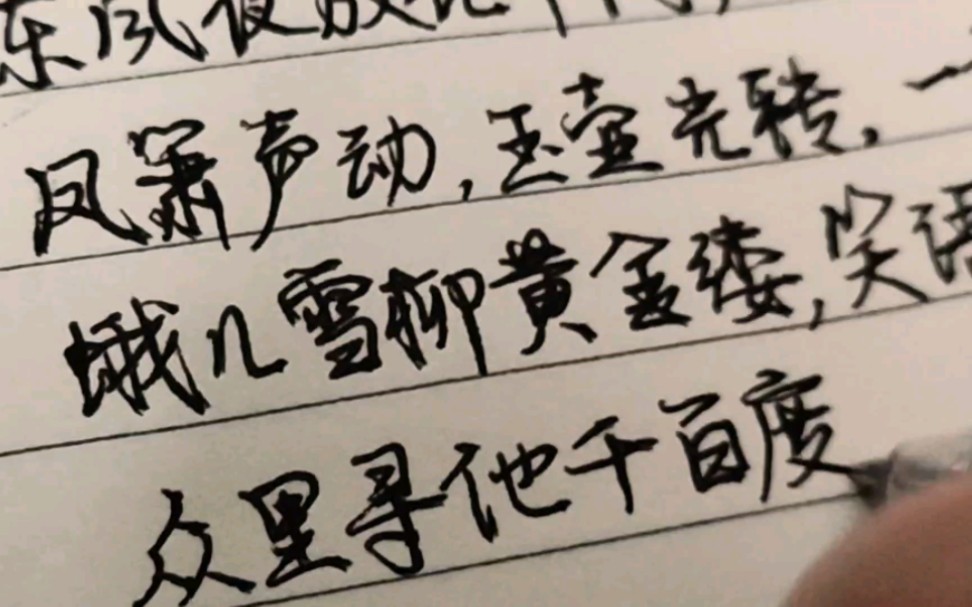 东风夜放花千
凤箫声动,玉壶光转,一
蛾儿雪柳黄金缕,笑语
众里寻他千百度